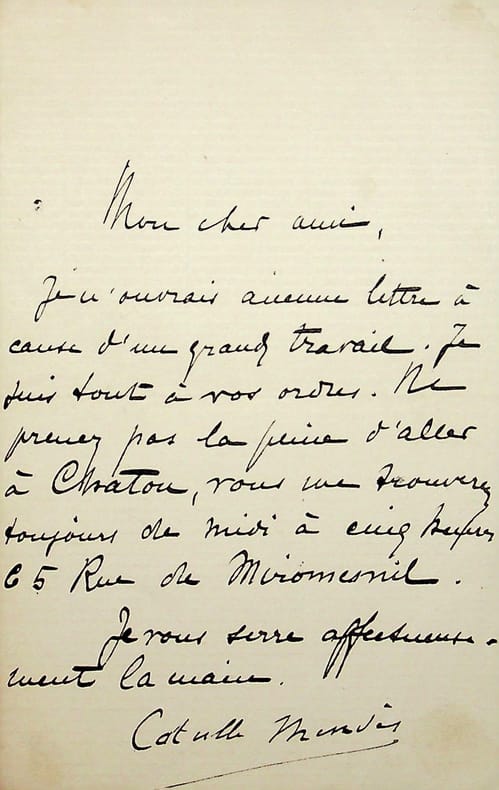 Mon cher ami,
Je n'ouvrais aucune lettre à
cause d'un grand travail. Je
suis tout à vos ordres. Ne
prenez pas la peine d'aller
à Chatou, vous me trouverez
toujours de midi à cinq heures
65 Rue de Miromesnil.
Je vous serre affectueuse-
ment la main.
Catulle Mendès